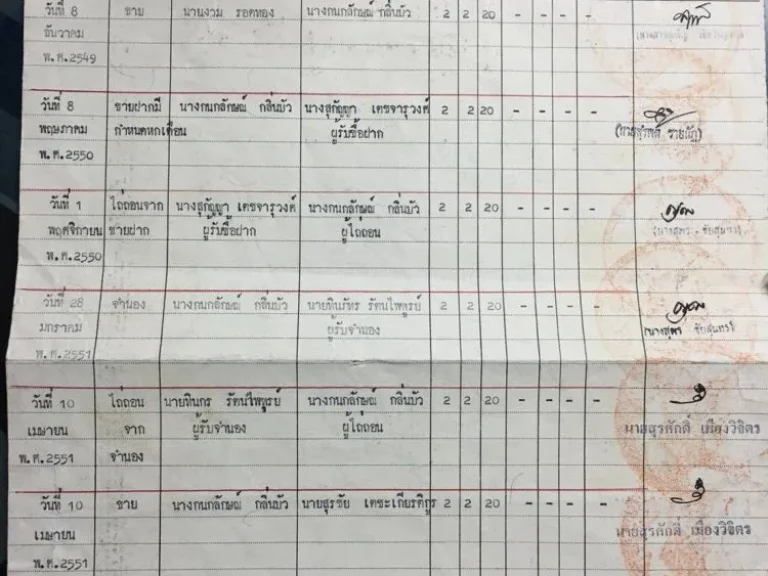 วันที่ 8 ขาย นายงาม รอดทอง นางกนกลักษณ์ กลิ่นบัว 2 2 20 - - - -
ธันวาคม
พ.ศ.2549
วันที่ 8 ขายฝากมี นางกนกลักษณ์ กลิ่นบัว นางสุกัญญา เตชจารุวงศ์ 2 2 20 - - - -
พฤษภาคม กำหนดหกเดือน ผู้รับซื้อฝาก
พ.ศ.2550
วันที่ 1 ไถ่ถอนจาก นางสุกัญญา เตชจารุวงศ์ นางกนกลักษณ์ กลิ่นบัว 2 2 20 - - - -
พฤศจิกายน ขายฝาก ผู้รับซื้อฝาก ผู้ไถ่ถอน
พ.ศ.2550
วันที่ 28 จำนอง นางกนกลักษณ์ กลิ่นบัว รัตนไพฑูรย์ 2 2 20 - - - -
มกราคม ผู้รับจำนอง
พ.ศ.2551
วันที่ 10 ไถ่ถอน นายทินกร รัตนไพฑูรย์ นางกนกลักษณ์ กลิ่นบัว 2 2 20 - - - -
เมษายน จาก ผู้รับจำนอง ผู้ไถ่ถอน นายสุรศักดิ์ เมืองวิจิตร
พ.ศ.2551 จำนอง
วันที่ 10 ขาย นางกนกลักษณ์ กลิ่นบัว นายสุรชัย เตชะเกียรติกูร 2 2 20 - - - -
เมษายน นายสุรศักดิ์ เมืองวิจิตร
พ.ศ.2551